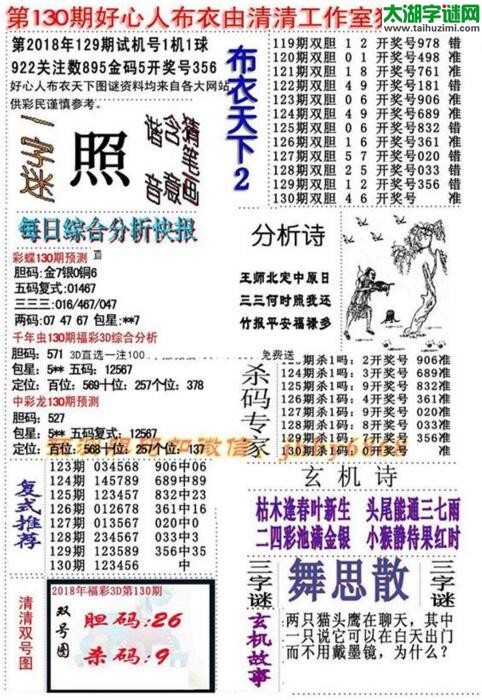 第130期好心人布衣由清清工作室
太湖字谜网
www.taihuzimi.com
第2018年129期试机号1机1球
922关注数895金码5开奖号356
好心人布衣天下图谜资料均来自各大网站
供彩民谨慎参考。
一字谜
照
猜笔画
含意
谐音
布衣天下2
119期双胆 1 2 开奖号978 错
120期双胆 0 1 开奖号498 准
121期双胆 1 8 开奖号761 准
122期双胆 4 9 开奖号181 错
123期双胆 0 6 开奖号906 准
124期双胆 4 9 开奖号689 准
125期双胆 0 6 开奖号832 错
126期双胆 1 9 开奖号361 准
127期双胆 5 7 开奖号020 错
128期双胆 2 5 开奖号033 错
129期双胆 1 2 开奖号356 错
130期双胆 4 6 开奖号 准
每日综合分析快报
彩蝶130期预测
胆码：金7银0铜6
五码复式：01467
三三三：016/467/047
两码：07 47 67 包星：**7
千年虫130期福彩3D综合分析
胆码：571 3D直选一注100
免费送
包星：5** 五码：12567
定位：百位：569十位：257个位：378
中彩龙130期预测
胆码：527
包星：5** 五码复式：12567
定位：百位：568十位：257个位：137
分析诗
王师北定中原日
三三何时照我还
竹报平安福禄多
杀码专家
123期杀1吗：2开奖号 906准
124期杀1吗：3开奖号 689准
129期杀1码：9开奖号 356准
130期杀1码：0开奖号 准
复式推荐
123期 034568 906中06
124期 145789 689中89
125期 123457 832中23
126期 012678 361中16
127期 013567 020中0
128期 234589 033中3
129期 123589 356中35
130期 123456 中
玄机诗
枯木逢春叶新生 头尾能通三七雨
二四彩池满金银 小猴静待果红时
清清双号图
2018年福彩3D第130期
双号图
胆码：26
杀码：9
三字谜
舞思散
三字谜
玄机故事
两只猫头鹰在聊天，其中
一只说它可以在白天出门
而不用戴墨镜，为什么？